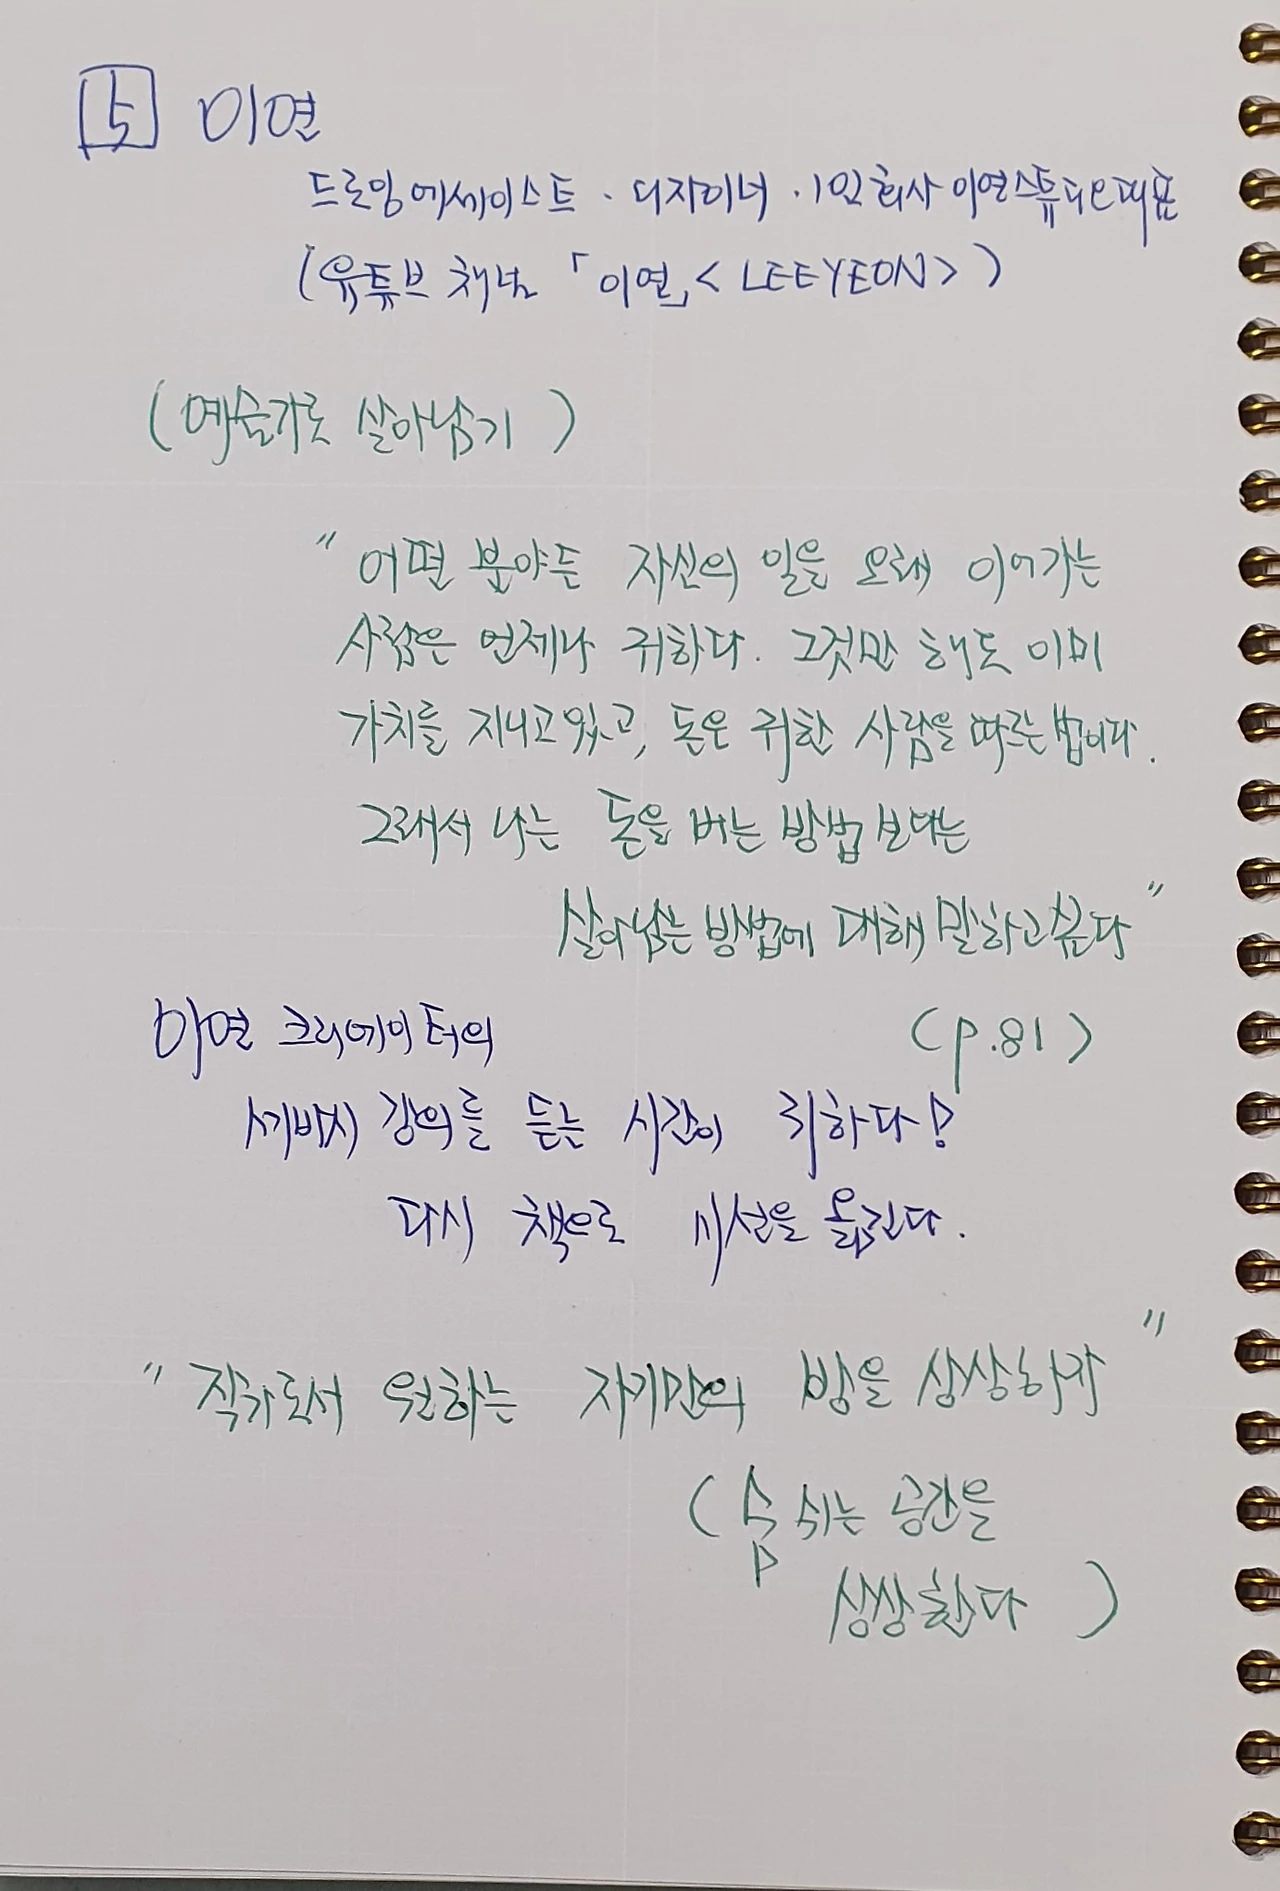 5 이연
드로잉에세이스트 · 디자이너 · 1인 회사 이연스튜디오 대표
(유튜브 채널 「이연」< LEEYEON >)
(예술가로 살아남기)
"어떤 분야든 자신의 일을 오래 이어가는
사람은 언제나 귀하다. 그것만 해도 이미
가치를 지니고 있고, 돈은 귀한 사람을 따르는 법이다.
그래서 나는 돈을 버는 방법 보다는
살아남는 방법에 대해 말하고 싶다"
(p.81)
이연 크리에이터의
세바시 강의를 듣는 시간이 귀하다!
다시 책으로 시선을 옮긴다.
"작가로서 원하는 자기만의 방을 상상하자"
(숨 쉬는 공간을
상상한다)